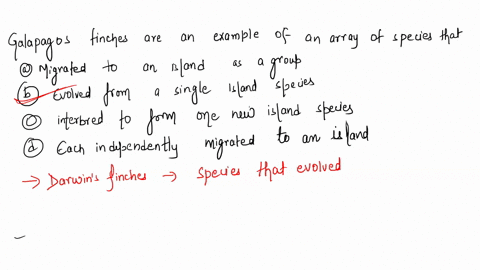 Galapagos finches are an example of an array of species that
(a) Migrated to an island as a group
(b) Evolved from a single island species
(c) interbred to form one new island species
(d) Each independently migrated to an island
→ Darwin's finches → species that evolved